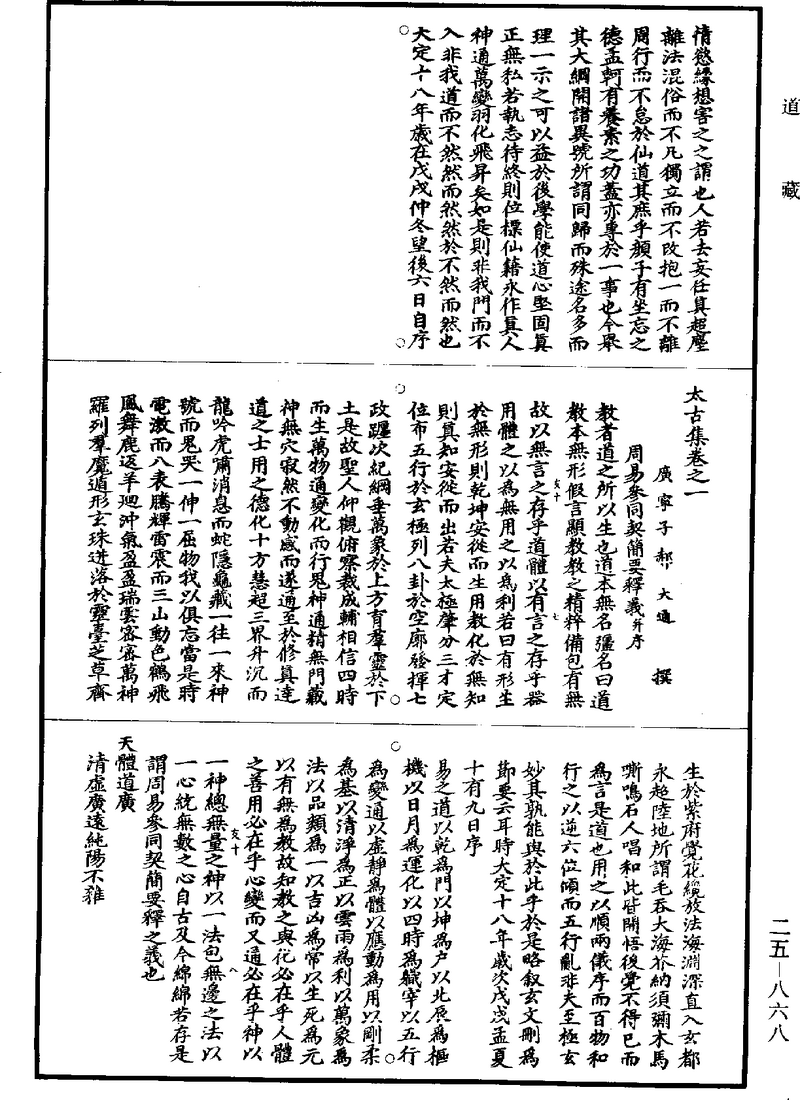 道藏
情慾緣想害之之謂也人若去妄任真超塵
離法混俗而不凡獨立而不改抱一而不離
周行而不怠於仙道其庶乎顏子有坐忘之
德孟軻有養素之功蓋亦專於一事也今舉
其大綱開諸異號所謂同歸而殊途名多而
理一示之可以益於後學能使道心堅固真
正無私若執志待終則位標仙籍永作真人
神通萬變羽化飛昇矣如是則非我門而不
入非我道而不然然而然然於不然而然也
大定十八年歲在戊戌仲冬望後六日自序
太古集卷之一
廣寧子郝大通撰
周易參同契簡要釋義并序
教者道之所以生也道本無名彊名曰道
教本無形假言顯教教之精粹備包有無
故以無言之存乎道體以有言之存乎器
亥十
七
用體之以為無用之以為利若曰有形生
於無形則乾坤安從而生用教化於無知
則真知安從而出若夫太極肇分三才定
位布五行於玄極列八卦於空廓發揮七
政躔次紀綱垂萬象於上方育羣靈於下
土是故聖人仰觀俯察裁成輔相信四時
而生萬物通變化而行鬼神通精無門藏
神無穴寂然不動感而遂通至於修真達
道之士用之德化十方慧超三界升沉而
龍吟虎嘯消息而蛇隱龜藏一往一來神
號而鬼哭一伸一屈物我以俱忘當是時
電激而八表騰輝雷震而三山動色鶴飛
鳳舞鹿返羊廻沖氣盈盈瑞雲密密萬神
羅列羣魔遁形玄珠迸落於靈臺芝草齊
生於紫府覺花纔放法海淵深直入玄都
永超陸地所謂毛吞大海芥納須彌木馬
嘶鳴石人唱和此皆開悟後覺不得已而
為言是道也用之以順兩儀序而百物和
行之以逆六位傾而五行亂非夫至極玄
妙其孰能與於此乎於是略叙玄文刪為
節要云耳時大定十八年歲次戊戌孟夏
十有九日序
易之道以乾為門以坤為户以北辰為樞
機以日月為運化以四時為職宰以五行
為變通以虛靜為體以應動為用以剛柔
為基以清淨為正以雲雨為利以萬象為
法以品類為一以吉凶為常以生死為元
以有無為教故知教之與化必在乎人體
之善用必在乎心變而又通必在乎神以
亥十
八
一神總無量之神以一法包無邊之法以
一心統無數之心自古及今綿綿若存是
謂周易參同契簡要釋之義也
天體道廣
清虛廣遠純陽不雜
二五—八六八